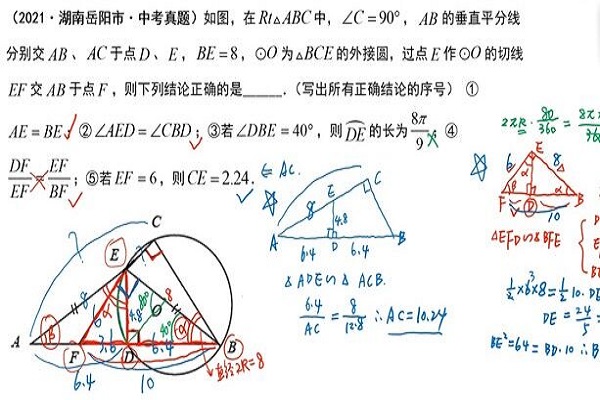 （2021·湖南岳阳市·中考真题）如图，在Rt△ABC中，∠C=90°，AB的垂直平分线
分别交AB、AC于点D、E，BE=8，⊙O为△BCE的外接圆，过点E作⊙O的切线
EF交AB于点F，则下列结论正确的是______.（写出所有正确结论的序号） ①
AE=BE；②∠AED=∠CBD；③若∠DBE=40°，则DE的长为8π/9；④
DF/EF=EF/BF；⑤若EF=6，则CE=2.24.
∈ AC.
8
E
C
4.8
A
6.4
D
6.4
B
△ADE∽△ACB.
6.4/AC = 8/12.8 ∴ AC=10.24
2πR·80/360 =
E
6
8
α
β
F
D
B
10
△EFD∽△BFE
1/2×6×8=1/2·10·DE
DE=24/5
BE²=64=BD·10
C
?
E
8
6
4.8
8
O
A
β
F
3.6
D
6.4
α
B
6.4
10
直径2R=8